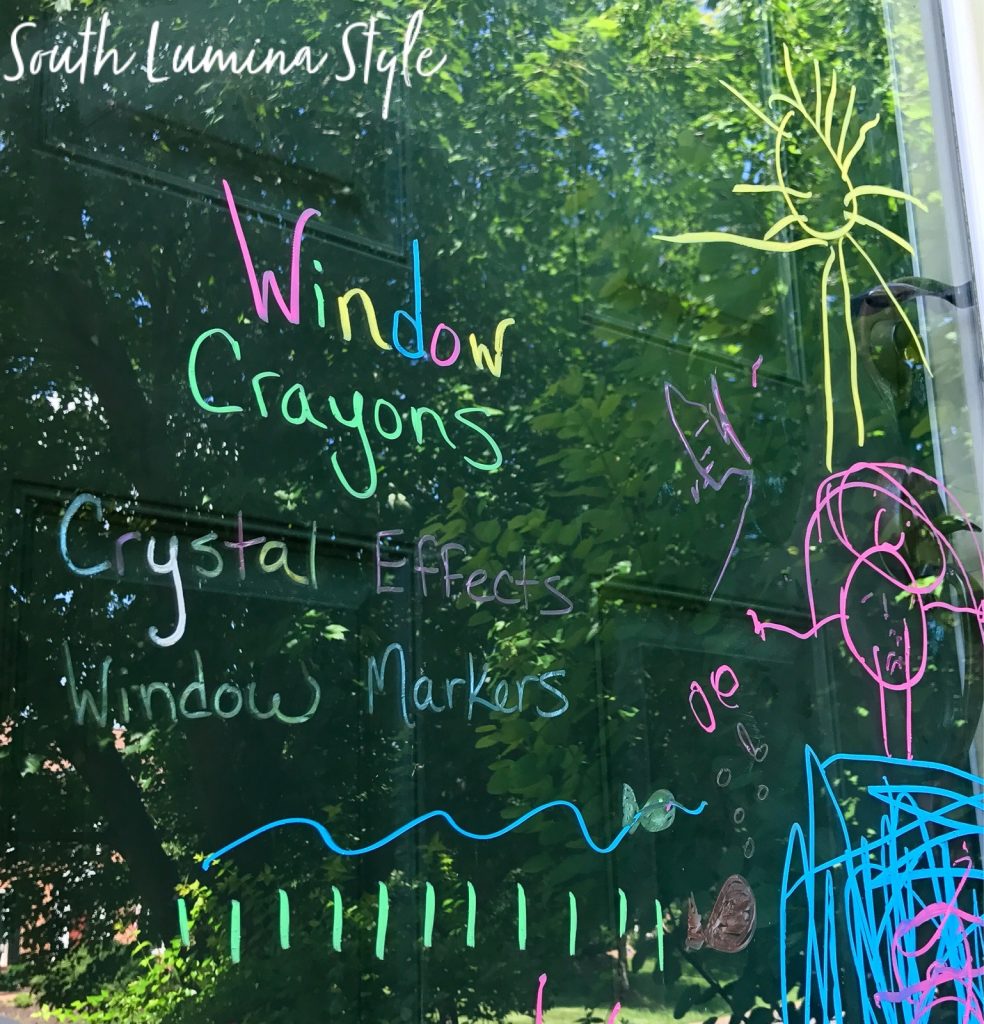 South Lumina Style
Window
Crayons
Crystal Effects
Window Markers